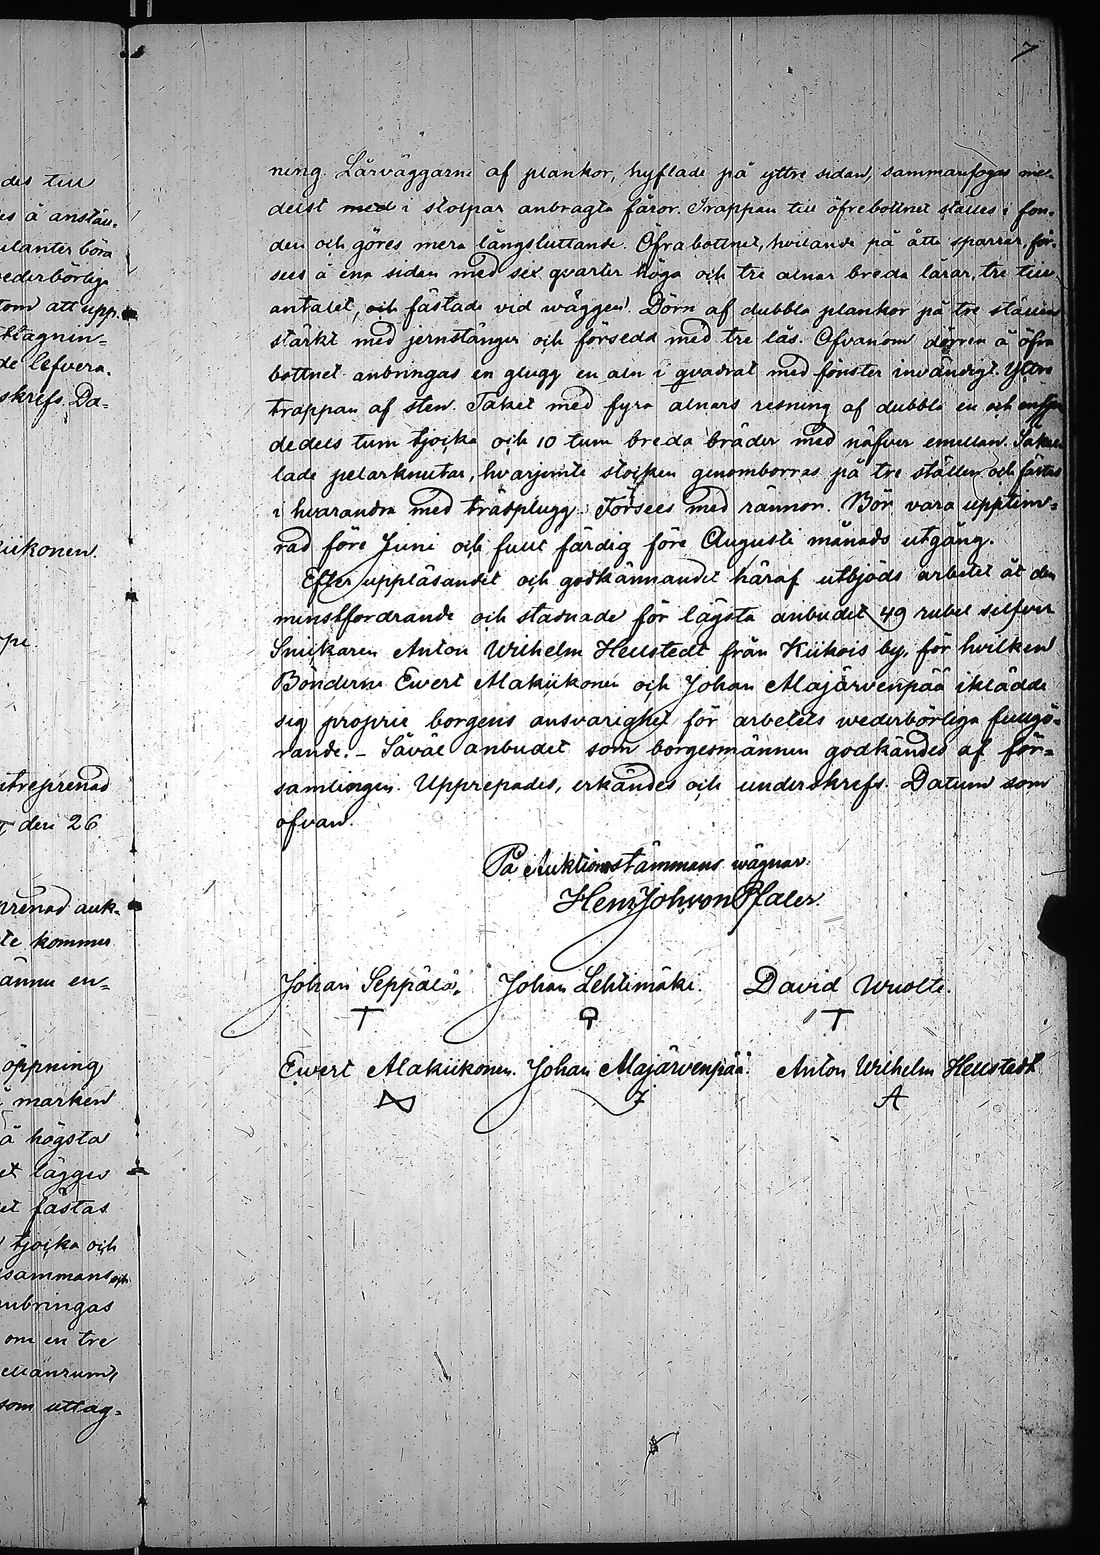 7
des till
es å anstän-
ulanter böra
ederbörlig
tom att upp-
tlagnin-
de lefvera.
skrefs. Da-
iikonen.
treprenad
den 26
prenad auk-
te kommer
ännu en-
öppning
marken
å högsta
et lägges
et fästas
tjocka och
sammans och
anbringas
om en tre
ellanrum,
som uttag-
ning. Lårväggarne af plankor, hyflade på yttre sidan, sammanfogas me-
delst med i stolpar anbragta fåror. Trappan till öfrebottnet ställes i fon-
den och göres mera långsluttande. Öfrabottnet, hvilande på åtta sparrar, för-
sees å ena sidan med sex qvarter höga och tre alnar breda lårar, tre till
antalet, och fästade vid wäggen. Dörn af dubbla plankor på tre ställen
stärkt med jernstänger och försedd med tre lås. Ofvanom dörren å öfra
bottnet anbringas en glugg en aln i qvadrat med fönster invändigt. Yttre
trappan af sten. Taket med fyra alnars resning af dubbla en och en
dedels tum tjocka och 10 tum breda bräder med näfver emellan.
lade pelarknutar, hvarjemte stocken genomborras på tre ställen och fästas
i hvarandra med träsplugg. Försees med rännor. Bör vara upptim-
rad före Juni och fullt färdig före Augusti månads utgång.
Efter uppläsandet och godkännandet häraf utbjöds arbetet åt den
minstfordrande och stadnade för lägsta anbudet 49 rubel silfver
Snickaren Anton Wilhelm Hellstedt från Kiikois by, för hvilken
Bönderne Ewert Alakiikonen och Johan Majärvenpää iklädde
sig proprie borgens ansvarighet för arbetets wederbörliga fullgö-
rande. – Såväl anbudet som borgesmännen godkändes af för-
samlingen. Upprepades, erkändes och underskrefs. Datum som
ofvan.
På Auktionsstämmans wägnar:
Henr. Joh. von Pfaler.
Johan Seppälä. Johan Lehtimäki. David Wuolte.
Ewert Alakiikonen. Johan Majärvenpää. Anton Wilhelm Hellstedt
A